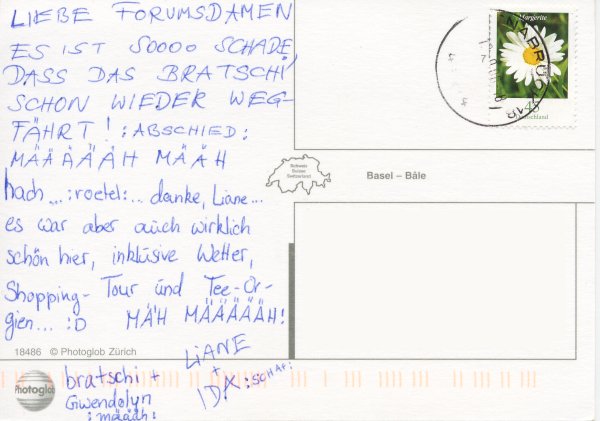 LIEBE FORUMSDAMEN
ES IST SOOOO SCHADE,
DASS DAS BRATSCHI
SCHON WIEDER WEG-
FÄHRT! :ABSCHIED:
MÄÄÄÄÄH MÄÄH
hach...:roetel:... danke, Liane...
es war aber auch wirklich
schön hier, inklusive Wetter,
Shopping- Tour und Tee-Or-
gien... :D MÄH MÄÄÄÄÄH!
bratschi +
Gwendolyn
:määäh:
LIANE
+
IDA :SCHAF:
18486 © Photoglob Zürich
Photoglob
Schweiz
Suisse
Switzerland
Basel – Bâle
Margerite
45
Deutschland